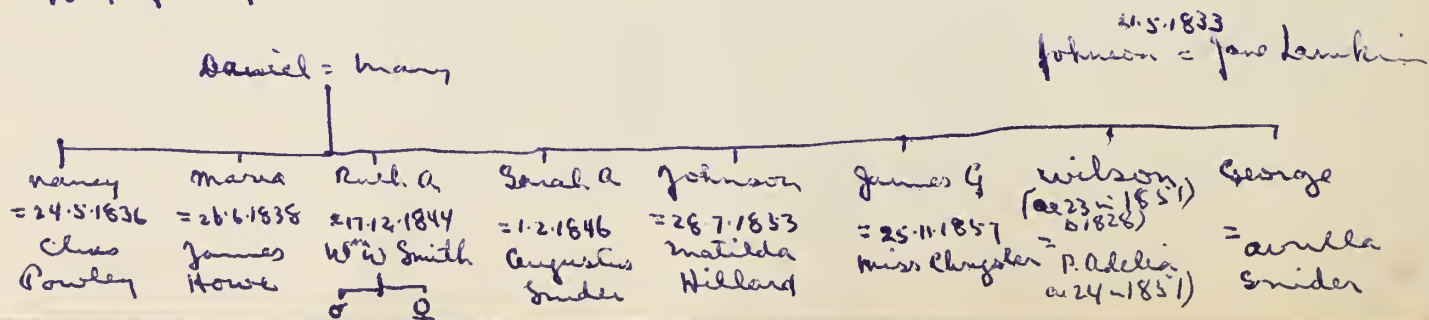 21.5.1833
Daniel = Mary
Johnson = Jane Lambkin
Nancy
= 24.5.1836
Chas
Powley
Maria
= 26.6.1838
James
Howe
Ruth A
= 17.12.1844
Wm W Smith
♂ ♀
Sarah A
= 1.2.1846
Augustus
Snider
Johnson
= 28.7.1853
Matilda
Hillard
James G
= 25.11.1857
Miss Chrysler
Wilson
(ae 23 in 1851)
b. 1828)
=
P. Adelia
ae 24 in 1851)
George
=
Snider